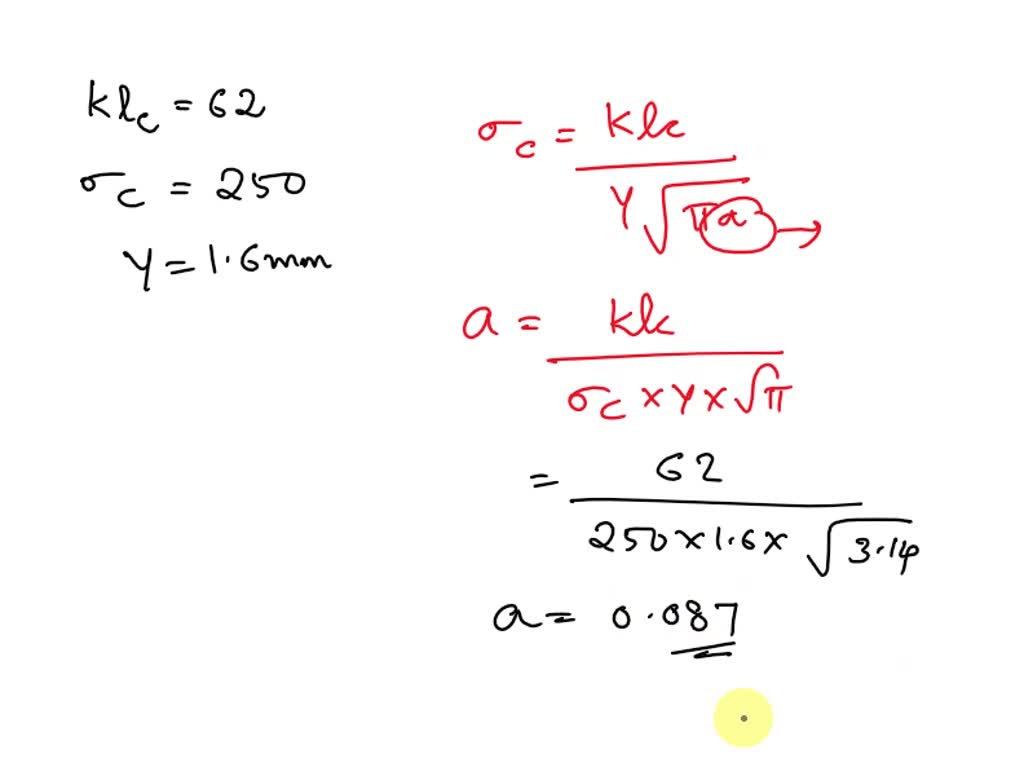 klc = 62
σc = 250
Y = 1.6mm
σc = klc / Y√πa →
a = klc / σc × Y × √π
= 62 / 250 × 1.6 × √3.14
a = 0.087